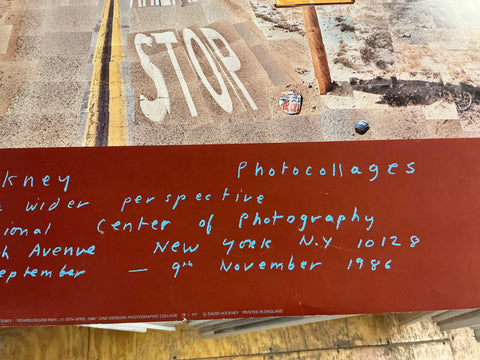 STOP
ckney Photocollages
wider perspective
ional Center of Photography
h Avenue New York N.Y 10128
eptember — 9th November 1986
CKNEY "PEARBLOSSOM HWY., 11-18TH APRIL 1986" (2ND VERSION) PHOTOGRAPHIC COLLAGE © DAVID HOCKNEY PRINTED IN ENGLAND